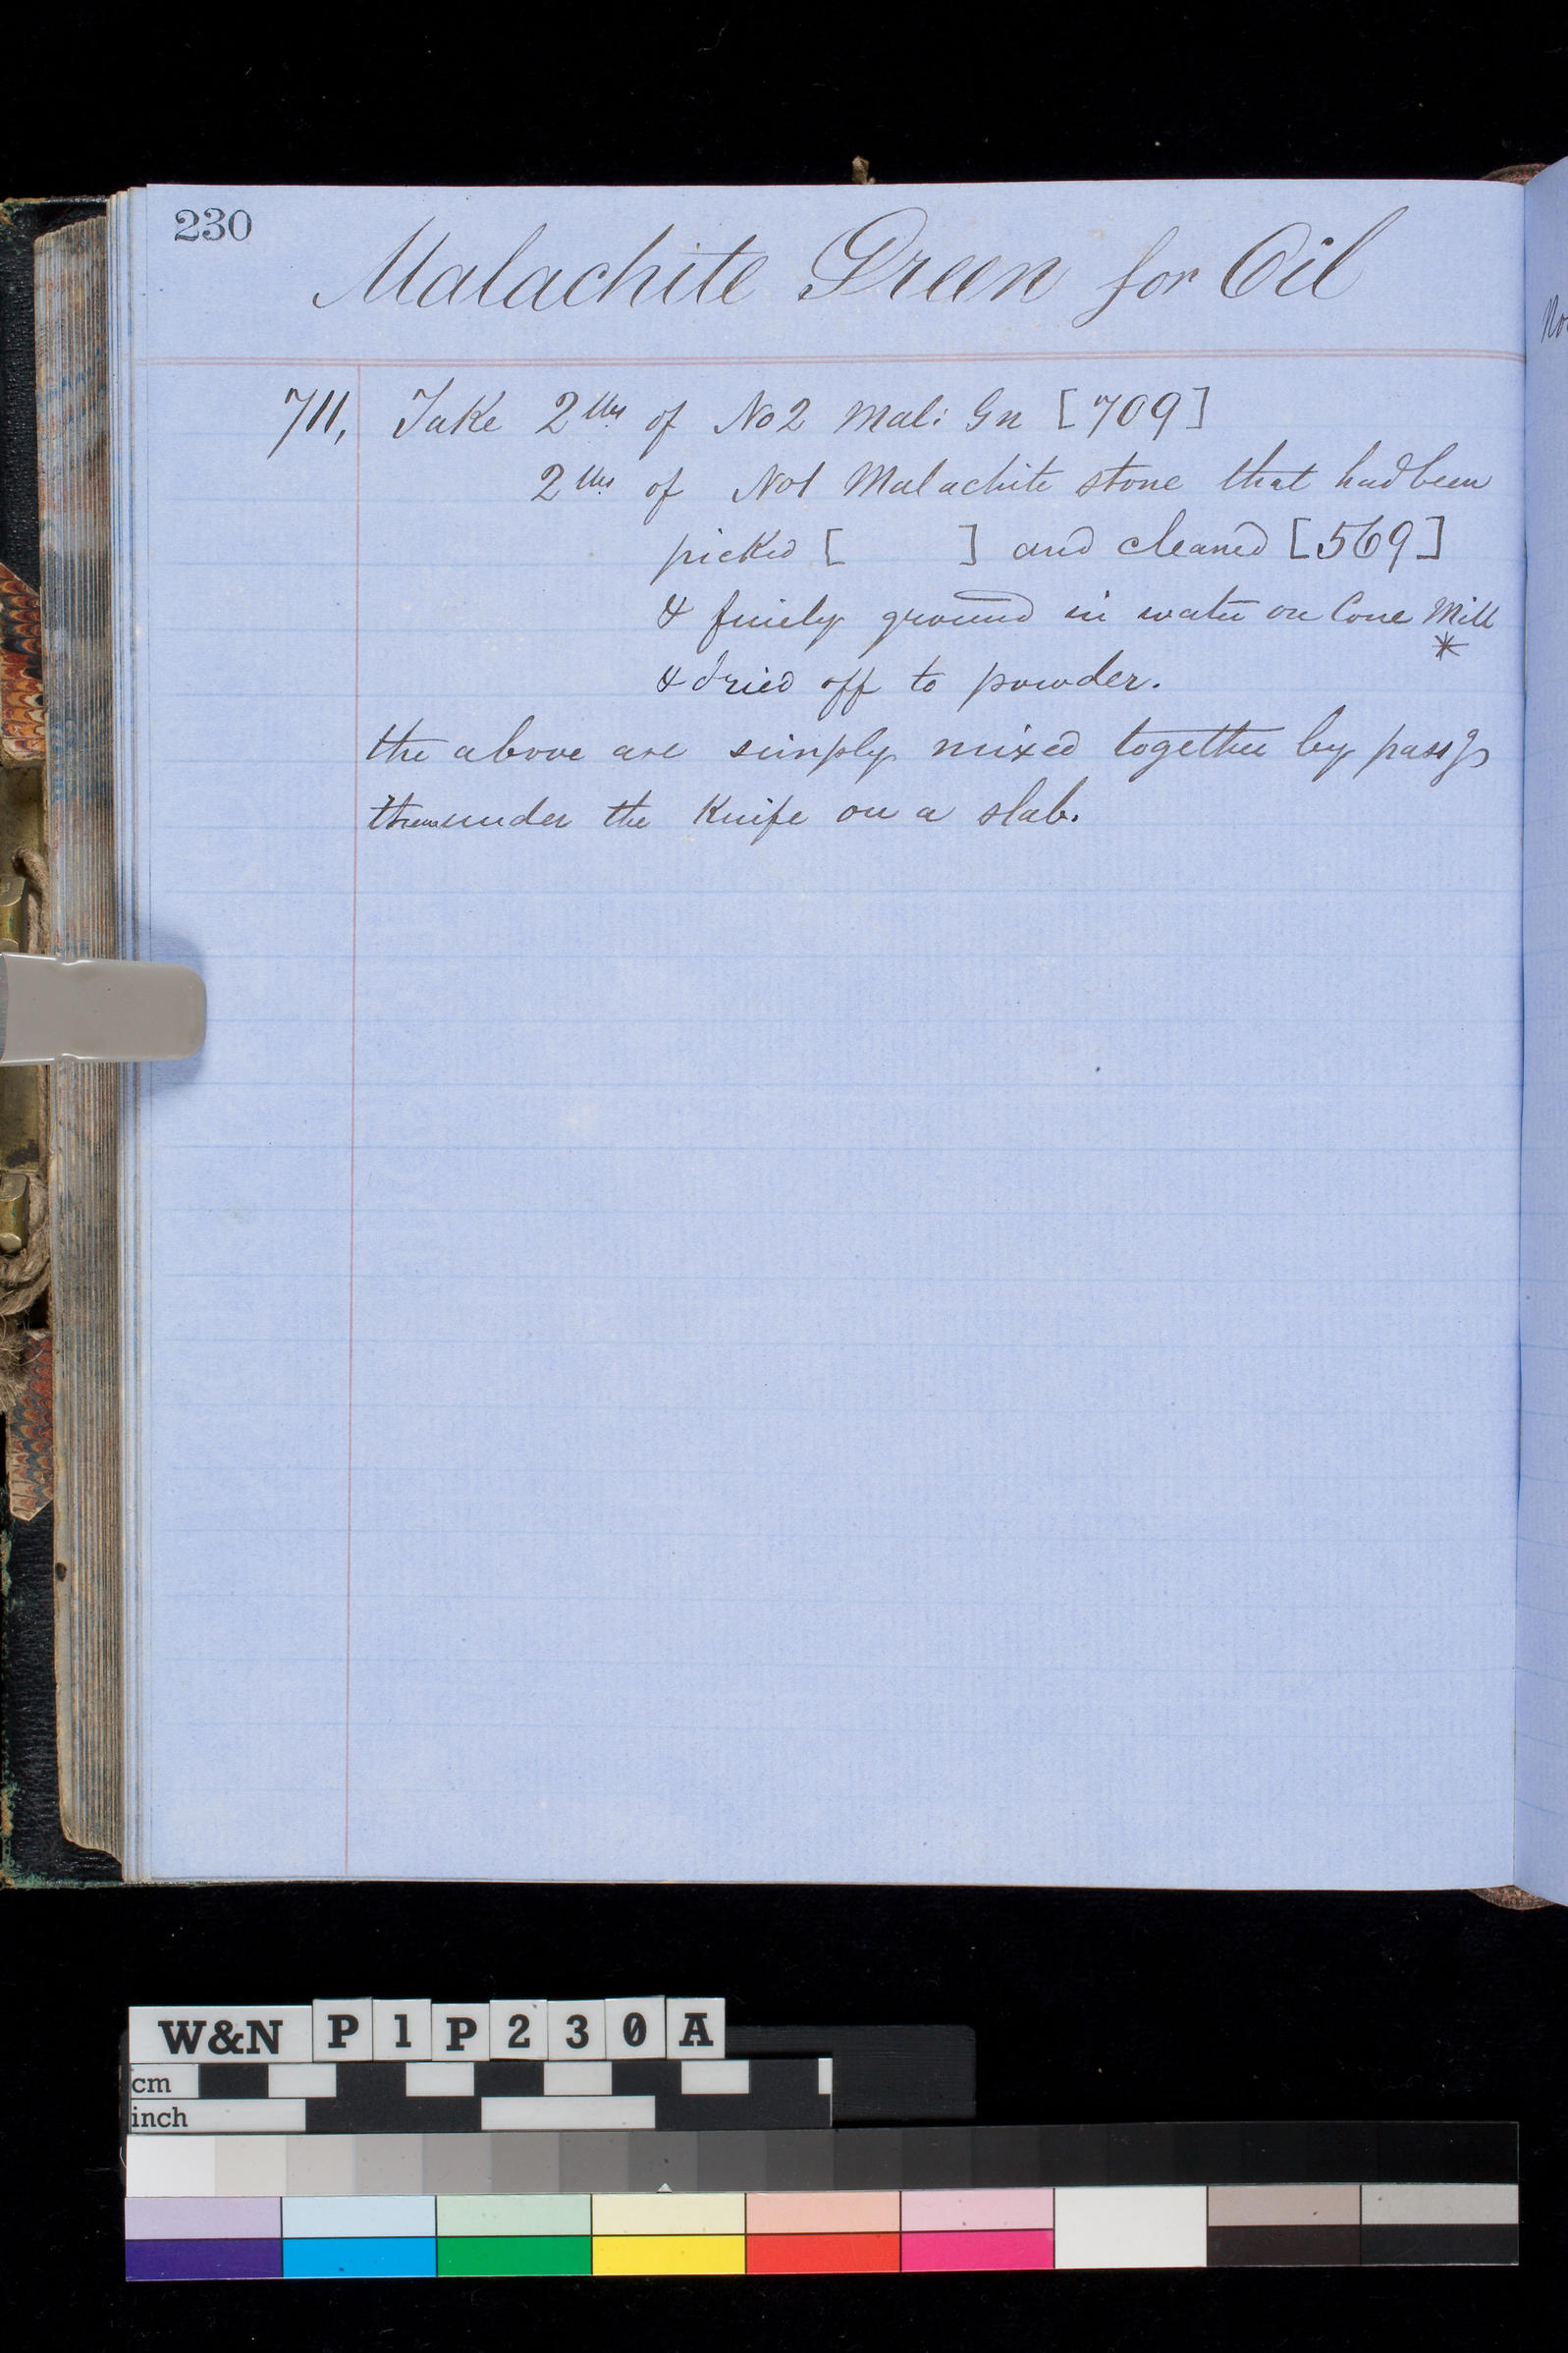 230
Malachite Green for Oil
711, Take 2 lbs of No2 Mal: Gn [709]
2 lbs of No1 Malachite stone that had been
picked [ ] and cleaned [569]
& finely ground in water on Cone Mill
*
& dried off to powder.
the above are simply mixed together by passg
them under the Knife on a slab.
No
W&N P1P230A
cm
inch